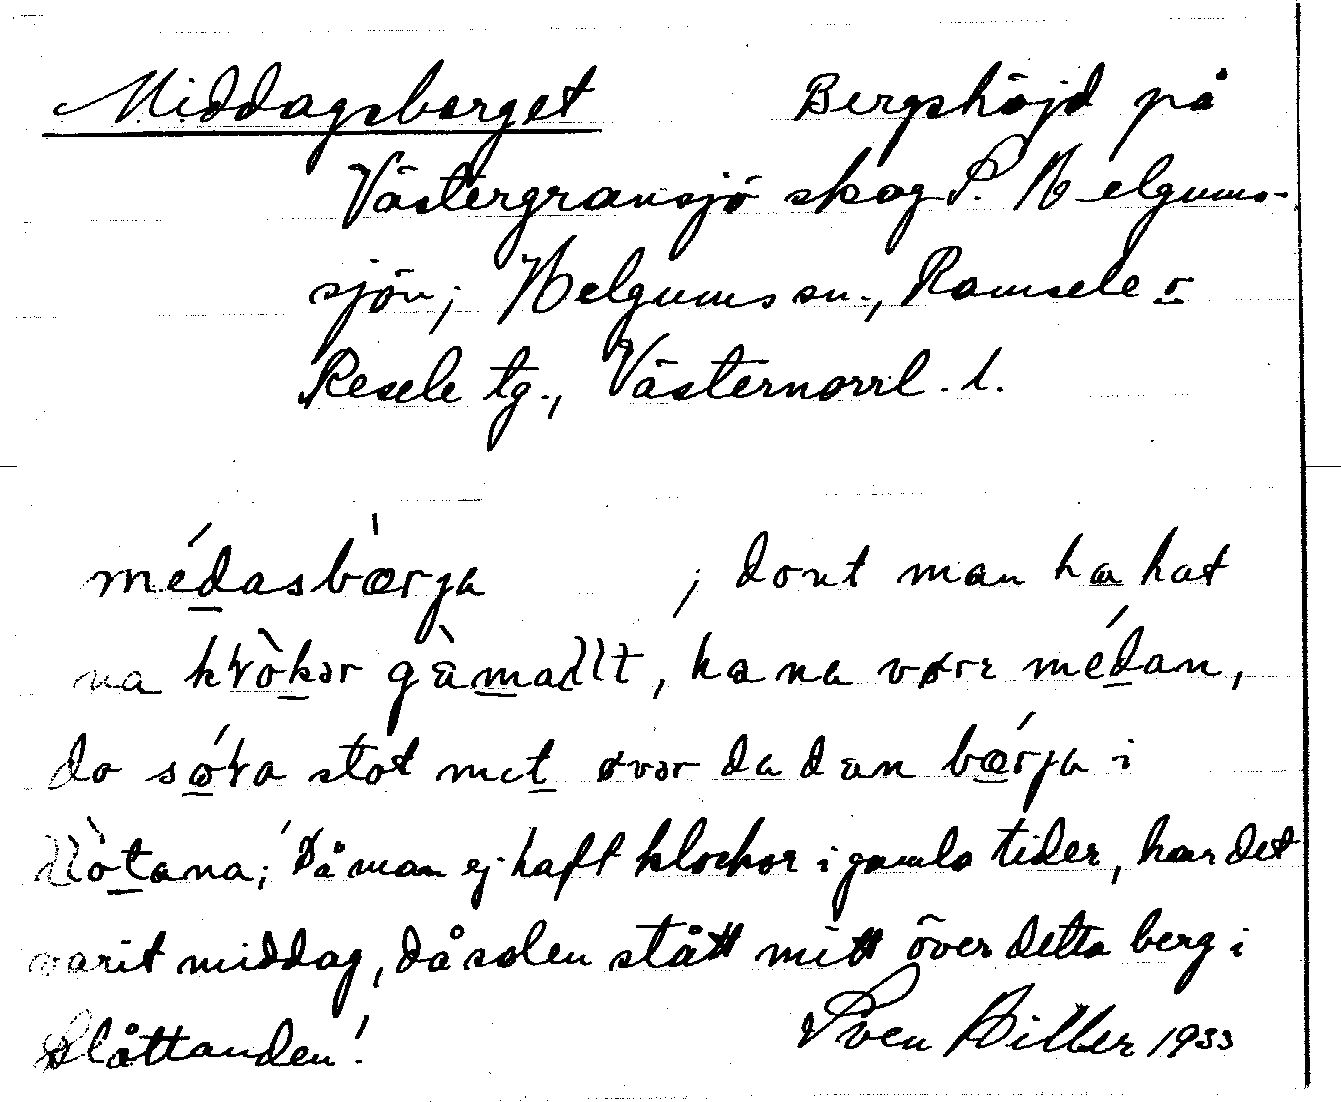 Middagsberget Bergshöjd på
Västergransjö skog S. Helgums-
sjön; Helgums sn., Ramsele o
Resele tg., Västernorrl. l.
médasbærja ; dont man ha hat
na kɽòkər gàmaɭɭt, ha na vørı médan,
do sǿɽa stot mıt øvər da dan bǽrja i
ɭɭòtana; 'Då man ej haft klockor i gamla tider, har det
varit middag, då solen stått mitt över detta berg i
Slåttanden'. Sven Hiller 1933